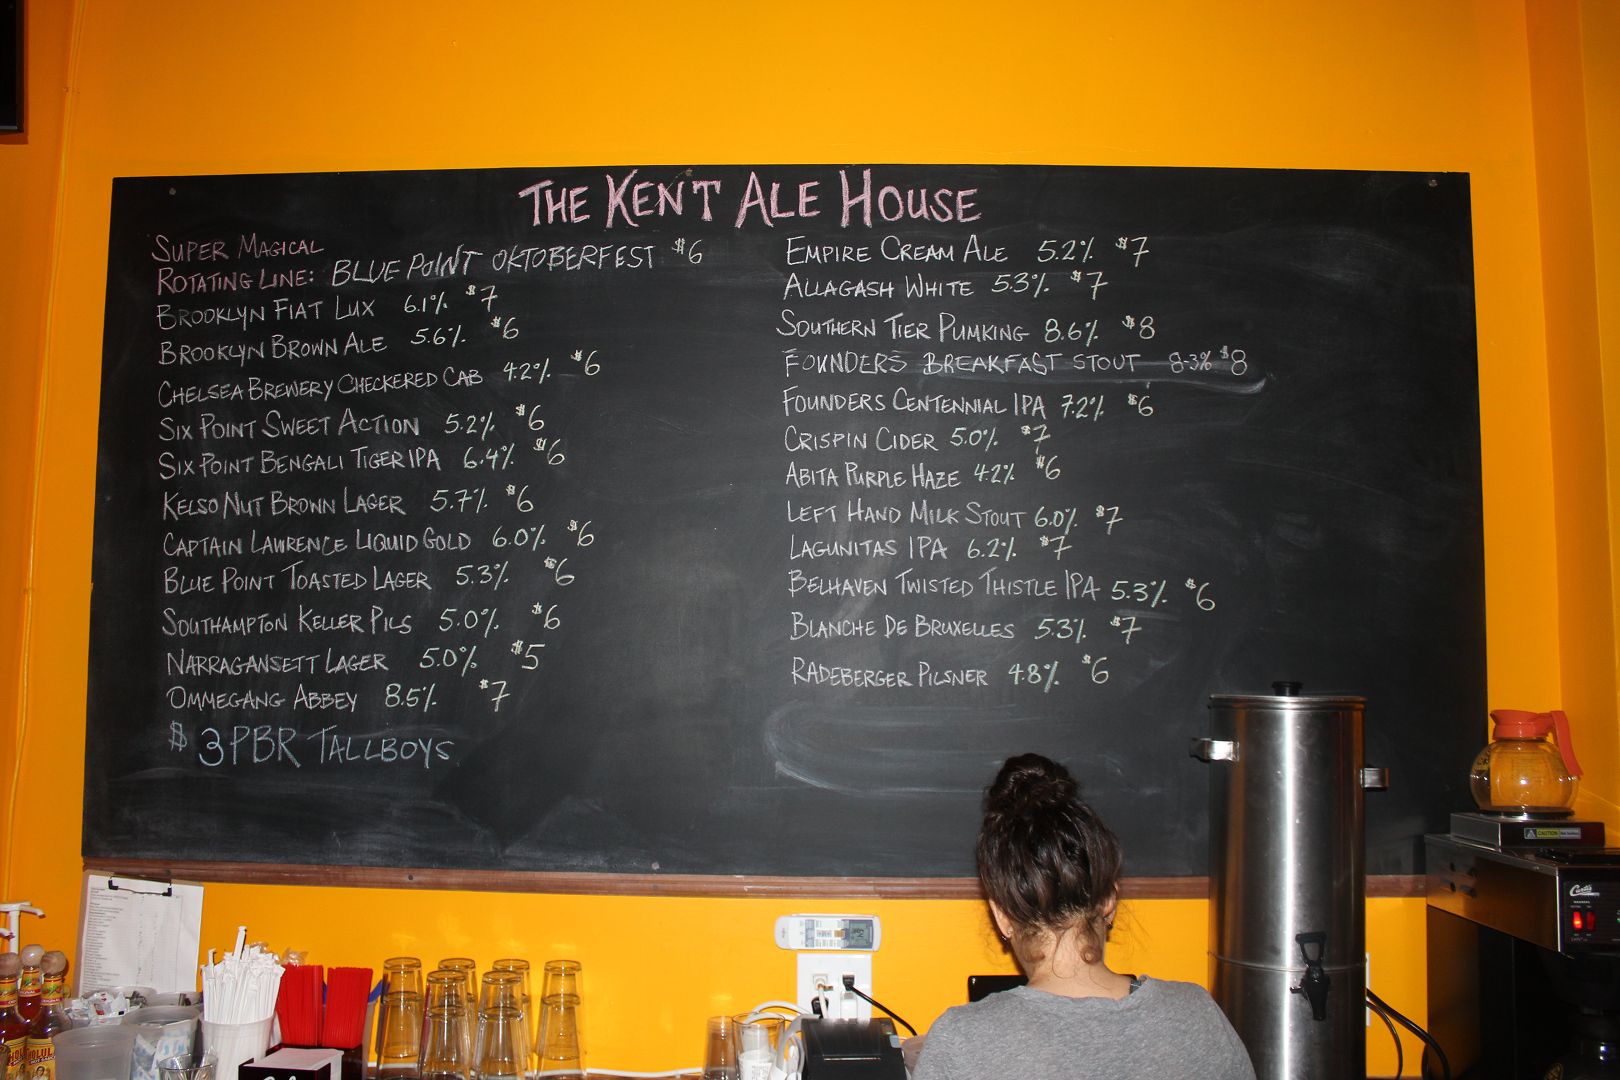 THE KENT ALE HOUSE
SUPER MAGICAL
ROTATING LINE: BLUE POINT OKTOBERFEST $6
BROOKLYN FIAT LUX 6.1% $7
BROOKLYN BROWN ALE 5.6% $6
CHELSEA BREWERY CHECKERED CAB 4.2% $6
SIX POINT SWEET ACTION 5.2% $6
SIX POINT BENGALI TIGER IPA 6.4% $6
KELSO NUT BROWN LAGER 5.7% $6
CAPTAIN LAWRENCE LIQUID GOLD 6.0% $6
BLUE POINT TOASTED LAGER 5.3% $6
SOUTHAMPTON KELLER PILS 5.0% $6
NARRAGANSETT LAGER 5.0% $5
OMMEGANG ABBEY 8.5% $7
$3 PBR TALLBOYS
EMPIRE CREAM ALE 5.2% $7
ALLAGASH WHITE 5.3% $7
SOUTHERN TIER PUMKING 8.6% $8
FOUNDERS BREAKFAST STOUT 8.3% $8
FOUNDERS CENTENNIAL IPA 7.2% $6
CRISPIN CIDER 5.0% $7
ABITA PURPLE HAZE 4.2% $6
LEFT HAND MILK STOUT 6.0% $7
LAGUNITAS IPA 6.2% $7
BELHAVEN TWISTED THISTLE IPA 5.3% $6
BLANCHE DE BRUXELLES 5.3% $7
RADEBERGER PILSNER 4.8% $6
CAUTION
Curtis